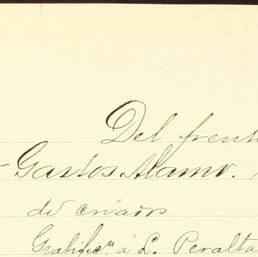 Del frent
Gastos Alamo.
de criados
Gratificn. á L. Peralta